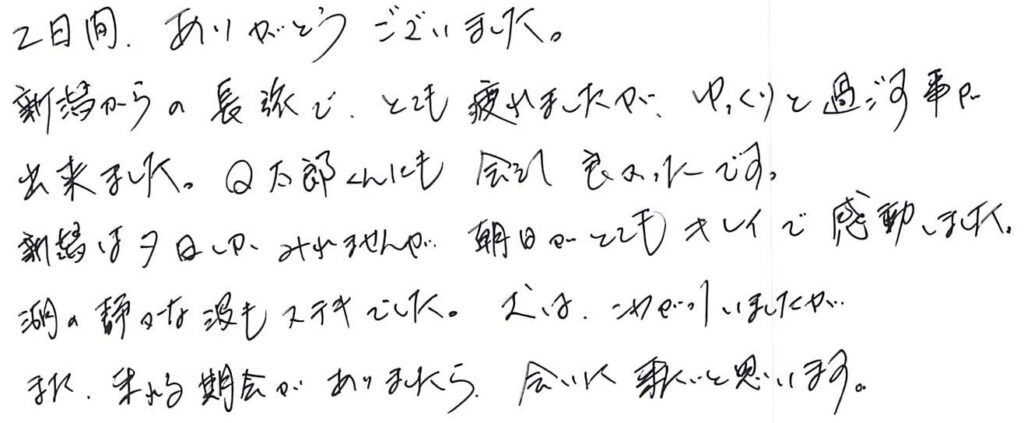 2日間、ありがとうございました。
新潟からの長旅で、とても疲れましたが、ゆっくりと過ごす事が
出来ました。Q太郎くんにも会えて良かったです。
新潟は夕日しかみれませんが朝日がとてもキレイで感動しました。
湖の静かな波もステキでした。犬は、こわがっていましたが
また、来れる期会がありましたら、会いに来たいと思います。